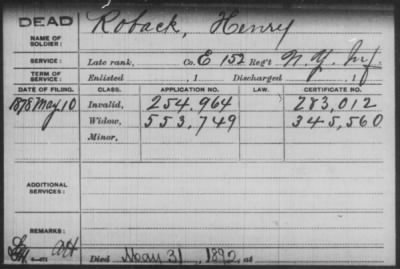 DEAD
Roback, Henry
NAME OF SOLDIER:
SERVICE: Late rank, Co. E 152 Reg't N. Y. Inf.
TERM OF SERVICE: Enlisted , 1 Discharged , 1
DATE OF FILING. CLASS. APPLICATION NO. LAW. CERTIFICATE NO.
1878 May 10 Invalid, 254.964 283,012
Widow, 553,749 345,560
Minor,
ADDITIONAL SERVICES:
REMARKS:
Died May 31, 1892, at